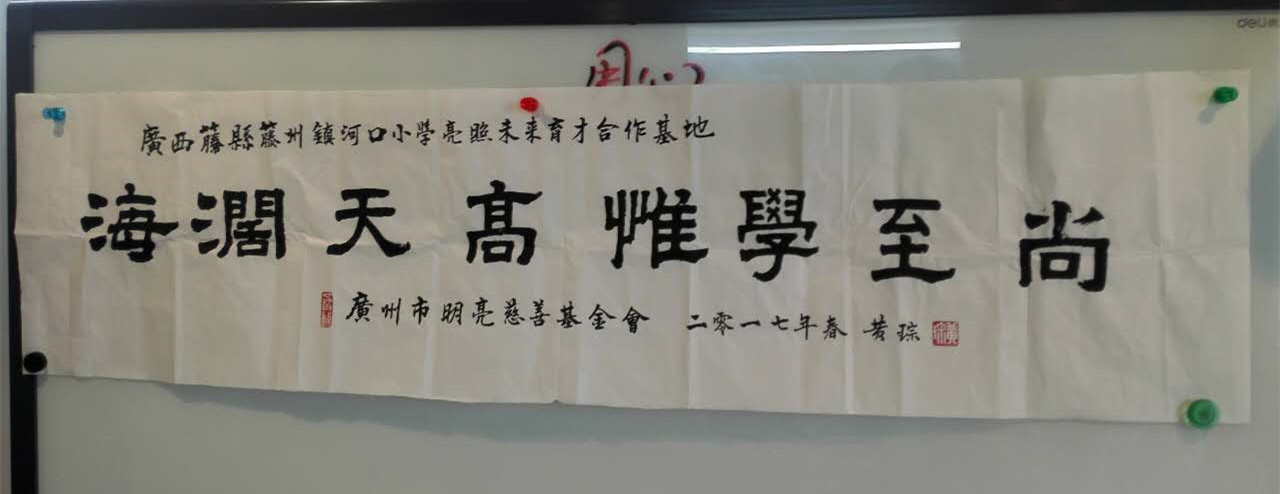 deli
廣西藤縣藤州鎮河口小學亮照未来育才合作基地
海濶天髙惟學至尚
廣州市明亮慈善基金會 二零一七年春 黄琮